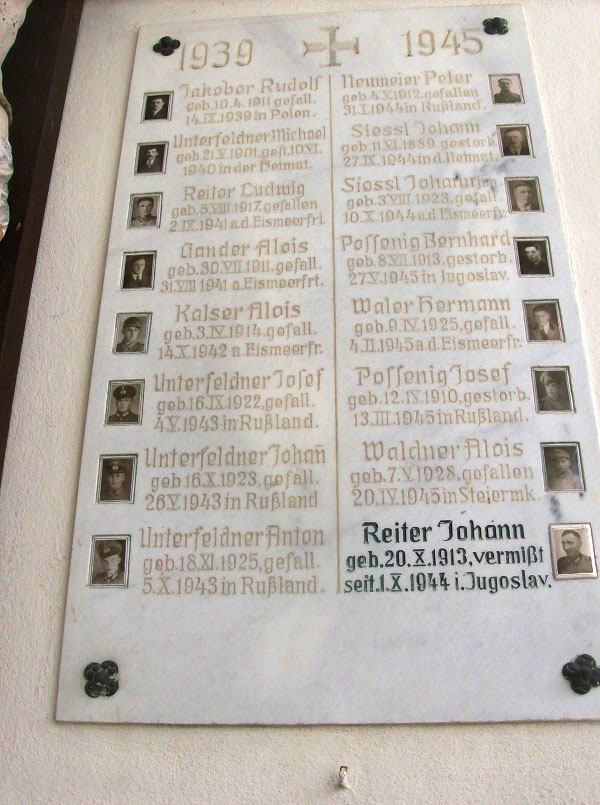 1939 1945
Jakober Rudolf
geb.10.4.1911 gefall.
14.IX.1939 in Polen.
Unterfeldner Michael
geb.21.V.1901, gest.10.VI.
1940 in der Heimat.
Reiter Ludwig
geb.5.VIII.1917, gefallen
2.IX.1941 a.d.Eismeerfrt.
Gander Alois
geb.30.VII.1911, gefall.
31.VIII.1941 a.Eismeerfrt.
Kalser Alois
geb.3.IV.1914, gefall.
14.X.1942 a.Eismeerfr.
Unterfeldner Josef
geb.16.IX.1922, gefall.
4.V.1943 in Rußland.
Unterfeldner Johan̄
geb.16.X.1923, gefall.
26.V.1943 in Rußland
Unterfeldner Anton
geb.18.XI.1925, gefall.
5.X.1943 in Rußland.
Neumeier Peter
geb.4.X.1912, gefallen
31.I.1944 in Rußland.
Siessl Johann
geb.11.VI.1889, gestorb.
27.IX.1944 in d.Heimat.
Siessl Johann
geb.3.VIII.1923, gefall.
10.X.1944 a.d.Eismeerfr.
Possenig Bernhard
geb.8.VII.1913, gestorb.
27.V.1945 in Jugoslav.
Waler Hermann
geb.9.IV.1925, gefall.
4.II.1945 a.d.Eismeerfr.
Possenig Josef
geb.12.IV.1910, gestorb.
13.III.1945 in Rußland.
Waldner Alois
geb.7.X.1928, gefallen
20.IV.1945 in Steiermk.
Reiter Johann
geb.20.X.1913, vermißt
seit.1.X.1944 i.Jugoslav.